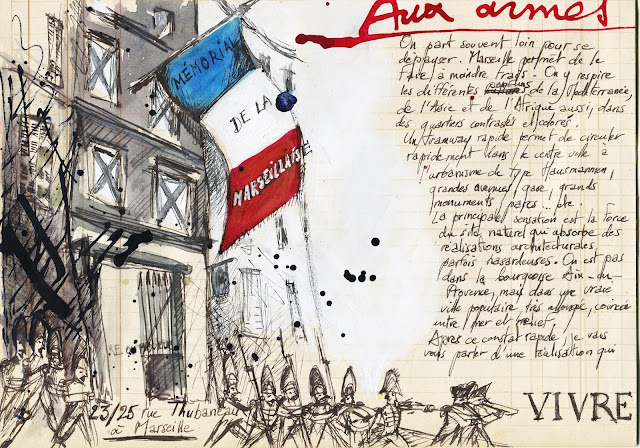 Aux armes
On part souvent loin pour se
dépayser. Marseille permet de le
faire à moindre frais. On y respire
les différentes de la Méditerranée,
de l'Asie et de l'Afrique aussi, dans
des quartiers contrastés et colorés.
Un Tramway rapide permet de circuler
rapidement dans le centre ville à
l'urbanisme de type Hausmannien,
grandes avenues, gare, grands
monuments, parcs.. etc.
La principale sensation est la force
du site, naturel qui absorbe des
réalisations architecturales
parfois hasardeuses. On est pas
dans la bourgeoise Aix-du-
Provence, mais dans une vraie
ville populaire très allongée, coincée
entre mer et relief.
Après ce constat rapide, je vais
vous parler d'une réalisation qui
MÉMORIAL
DE LA
MARSEILLAISE
23/25 rue Thubaneau
à Marseille
VIVRE